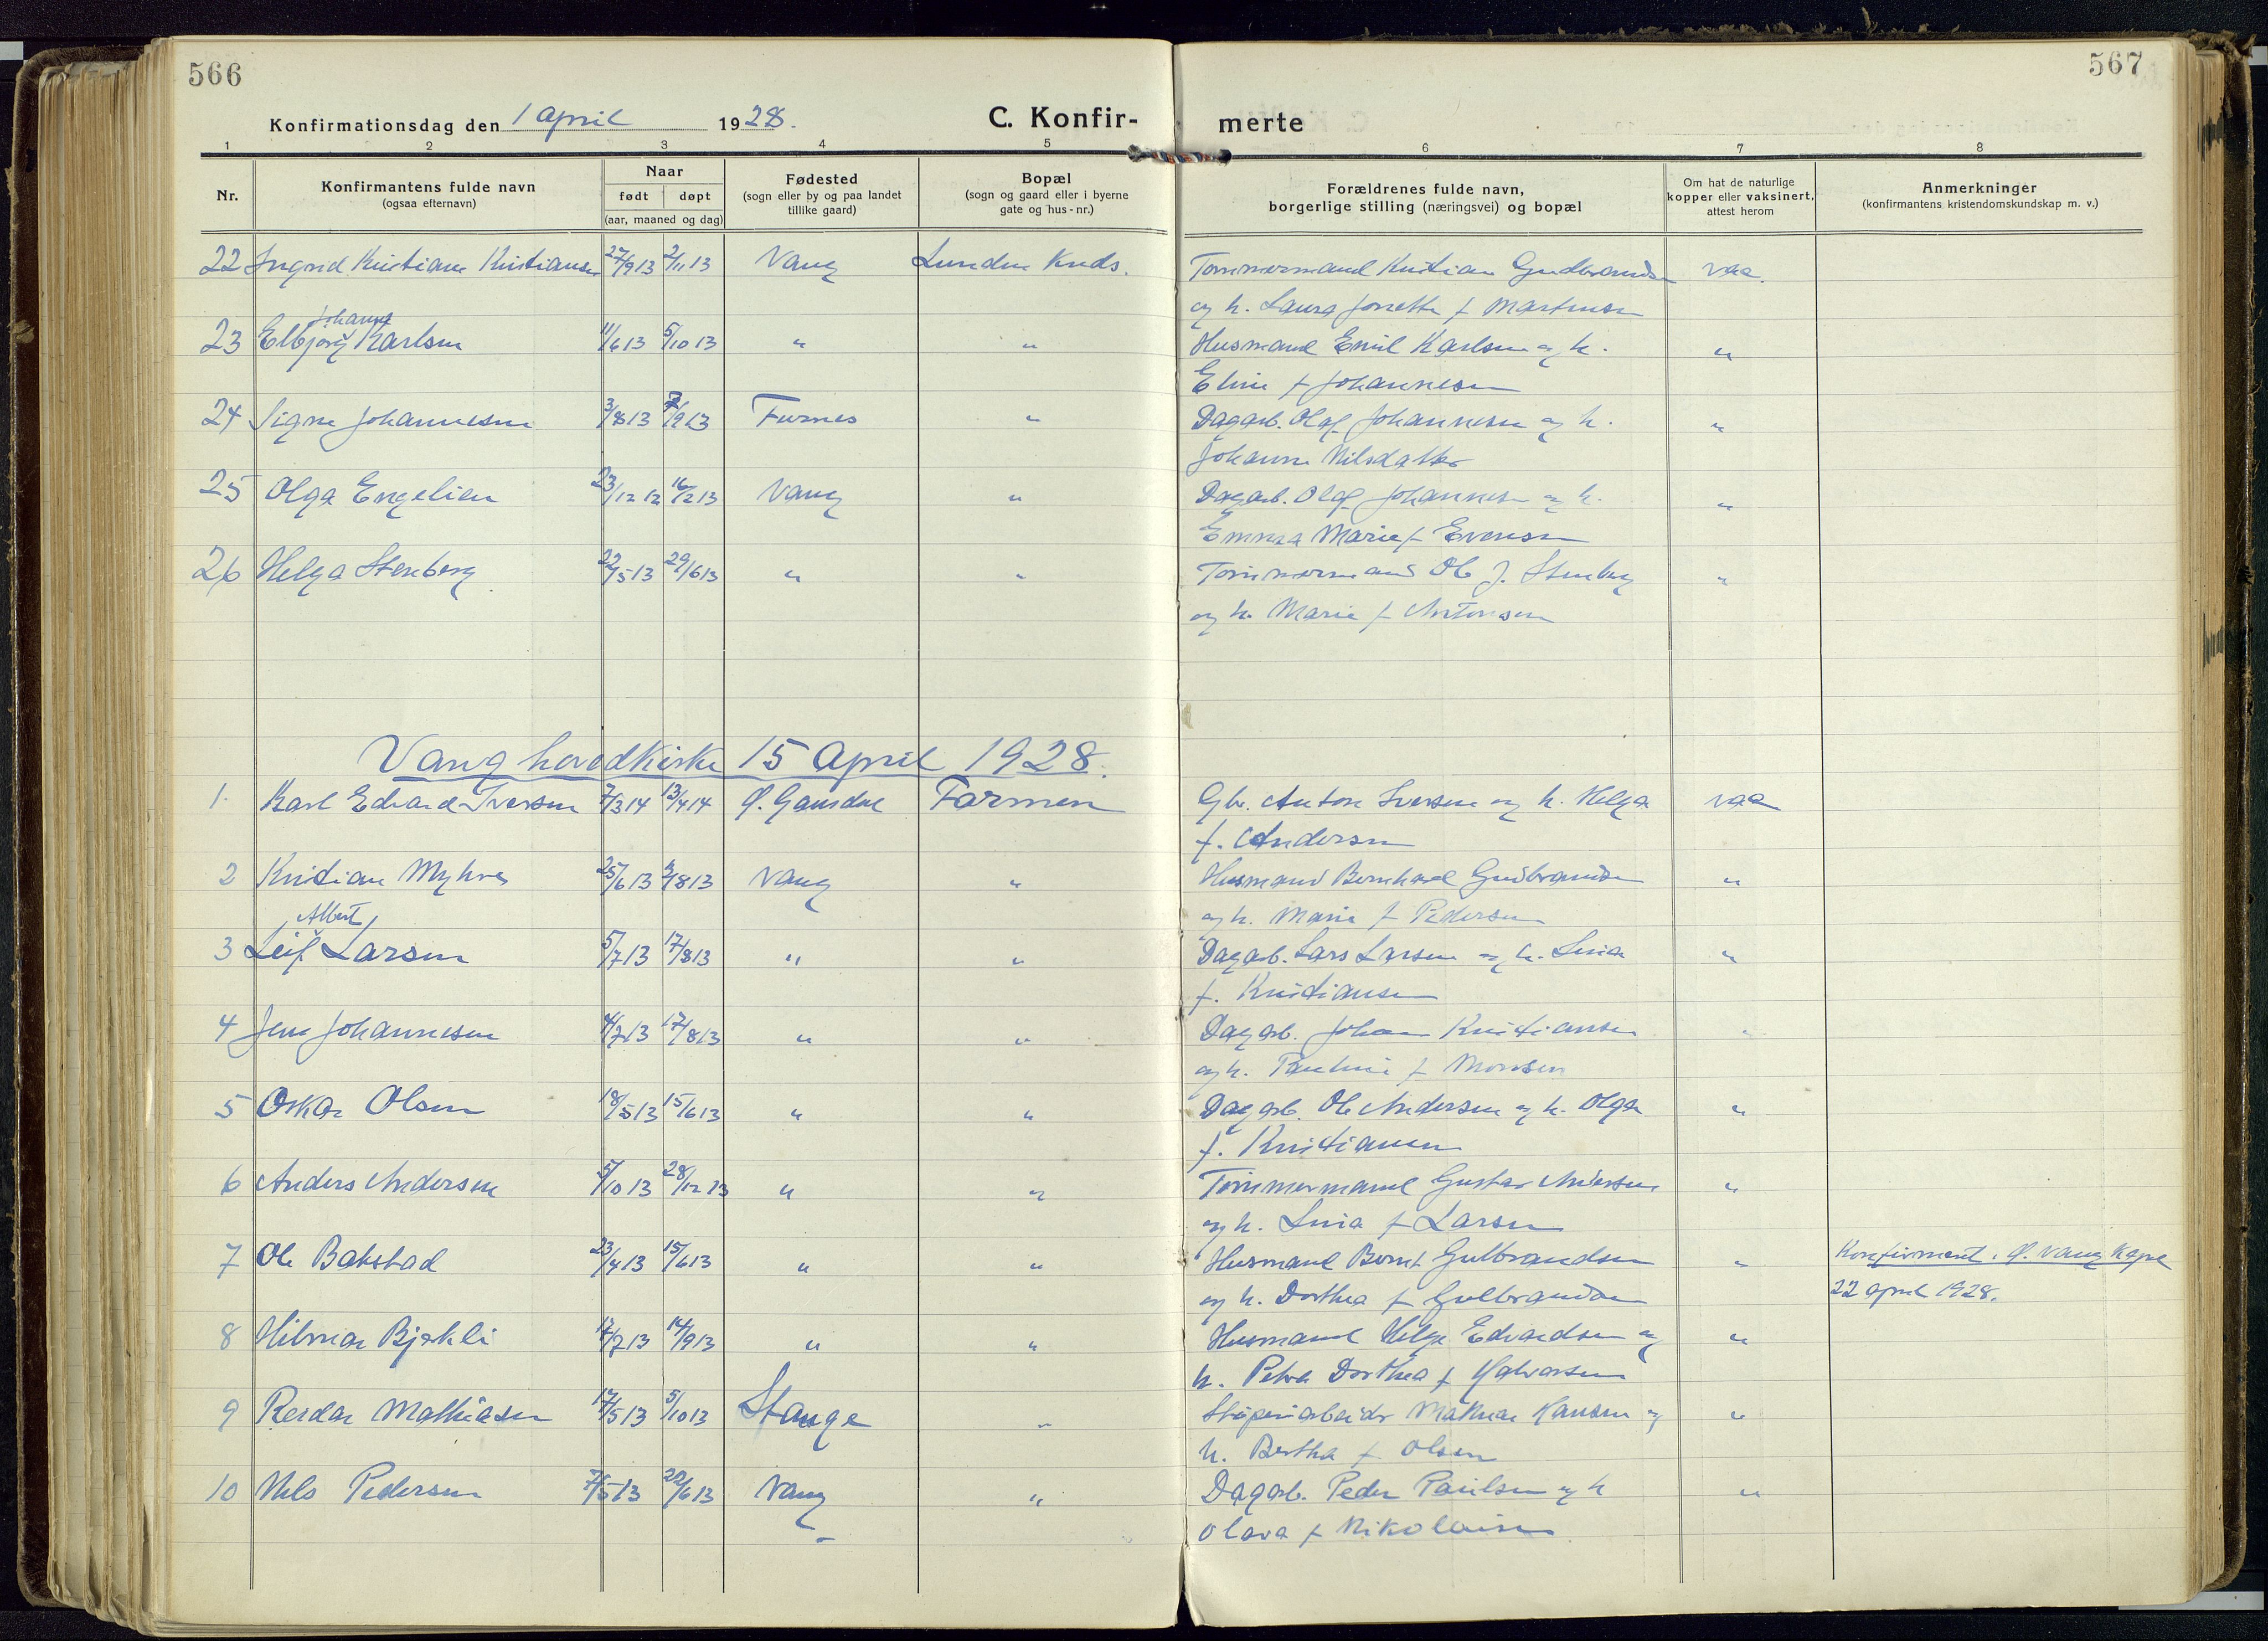 566
567
Konfirmationsdag den 1 April 1928.
C. Konfir-
merte
1 2 3 4 5 6 7 8
Nr.
Konfirmantens fulde navn
(ogsaa efternavn)
Naar
født døpt
(aar, maaned og dag)
Fødested
(sogn eller by og paa landet
tillike gaard)
Bopæl
(sogn og gaard eller i byerne
gate og hus-nr.)
Forældrenes fulde navn,
borgerlige stilling (næringsvei) og bopæl
Om hat de naturlige
kopper eller vaksinert,
attest herom
Anmerkninger
(konfirmantens kristendomskundskap m. v.)
22 Ingrid Kristiane Kristiansen 27/9 13 2/11 13 Vang Kreds. Tømmermand Kristian Gudbrandsen vaa.
og h. Laura Jonette f Martinsen
Johanne
23 Elbjørg Karlsen 11/6 13 5/10 13 " " Husmand Emil Karlsen og h. "
Eline f Johannesen
24 Signe Johannesen 3/8 13 7/9 13 Furnes " Dagarb. Olaf Johannesen og h. "
Johanne Nilsdatter
25 Olga Engelien 23/12 12 16/2 13 Vang " Dagarb. Olaf Johannesen og h. "
Emma Marie f Evensen
26 Helga Stenberg 22/5 13 29/6 13 " " Tømmermand Ole J. Stenberg "
og h. Marie f Antonsen
Vang hovedkirke 15 April 1928.
1. Karl Edvard Iversen 7/3 14 13/4 14 Ø. Gausdal Farmen Gbr. Anton Iversen og h. Helga vaa
f. Andersen
2 Kristian Myhres 25/6 13 /8 13 Vang " Husmand Bernhard Gudbrandsen "
og h. Marie f Pedersen
Albert
3 Leif Larsen 5/7 13 17/8 13 " " Dagarb. Lars Larsen og h. Lina "
f. Kristiansen
4 Jens Johannesen 4/7 13 17/8 13 " " Dagarb. Johan Kristiansen "
og h. Pauline f Monsen
5 Oskar Olsen 18/5 13 15/6 13 " " Dagarb. Ole Andersen og h. Olga "
f. Kristiansen
6 Anders Andersen 5/10 13 28/12 13 " " Tømmermand Gustav Andersen "
og h. Lina f Larsen
7 Ole Bakstad 23/4 13 15/6 13 " " Husmand Bernt Gulbrandsen " Konfirmert i Ø. Vang Kapel
og h. Dorthea f Gulbrandsen 22 april 1928.
8 Hilmar Bjerkli 17/7 13 14/9 13 " " Husmand Helge Edvardsen og "
h. Petra Dorthea f Halvorsen
9 Reidar Mathiasen 17/5 13 5/10 13 Stange " Støperiarbeider Hansen og "
h. Bertha f Olsen
10 Nils Pedersen 7/5 13 22/6 13 Vang " Dagarb. Peder Paulsen og h "
Olava f Nikolaisen